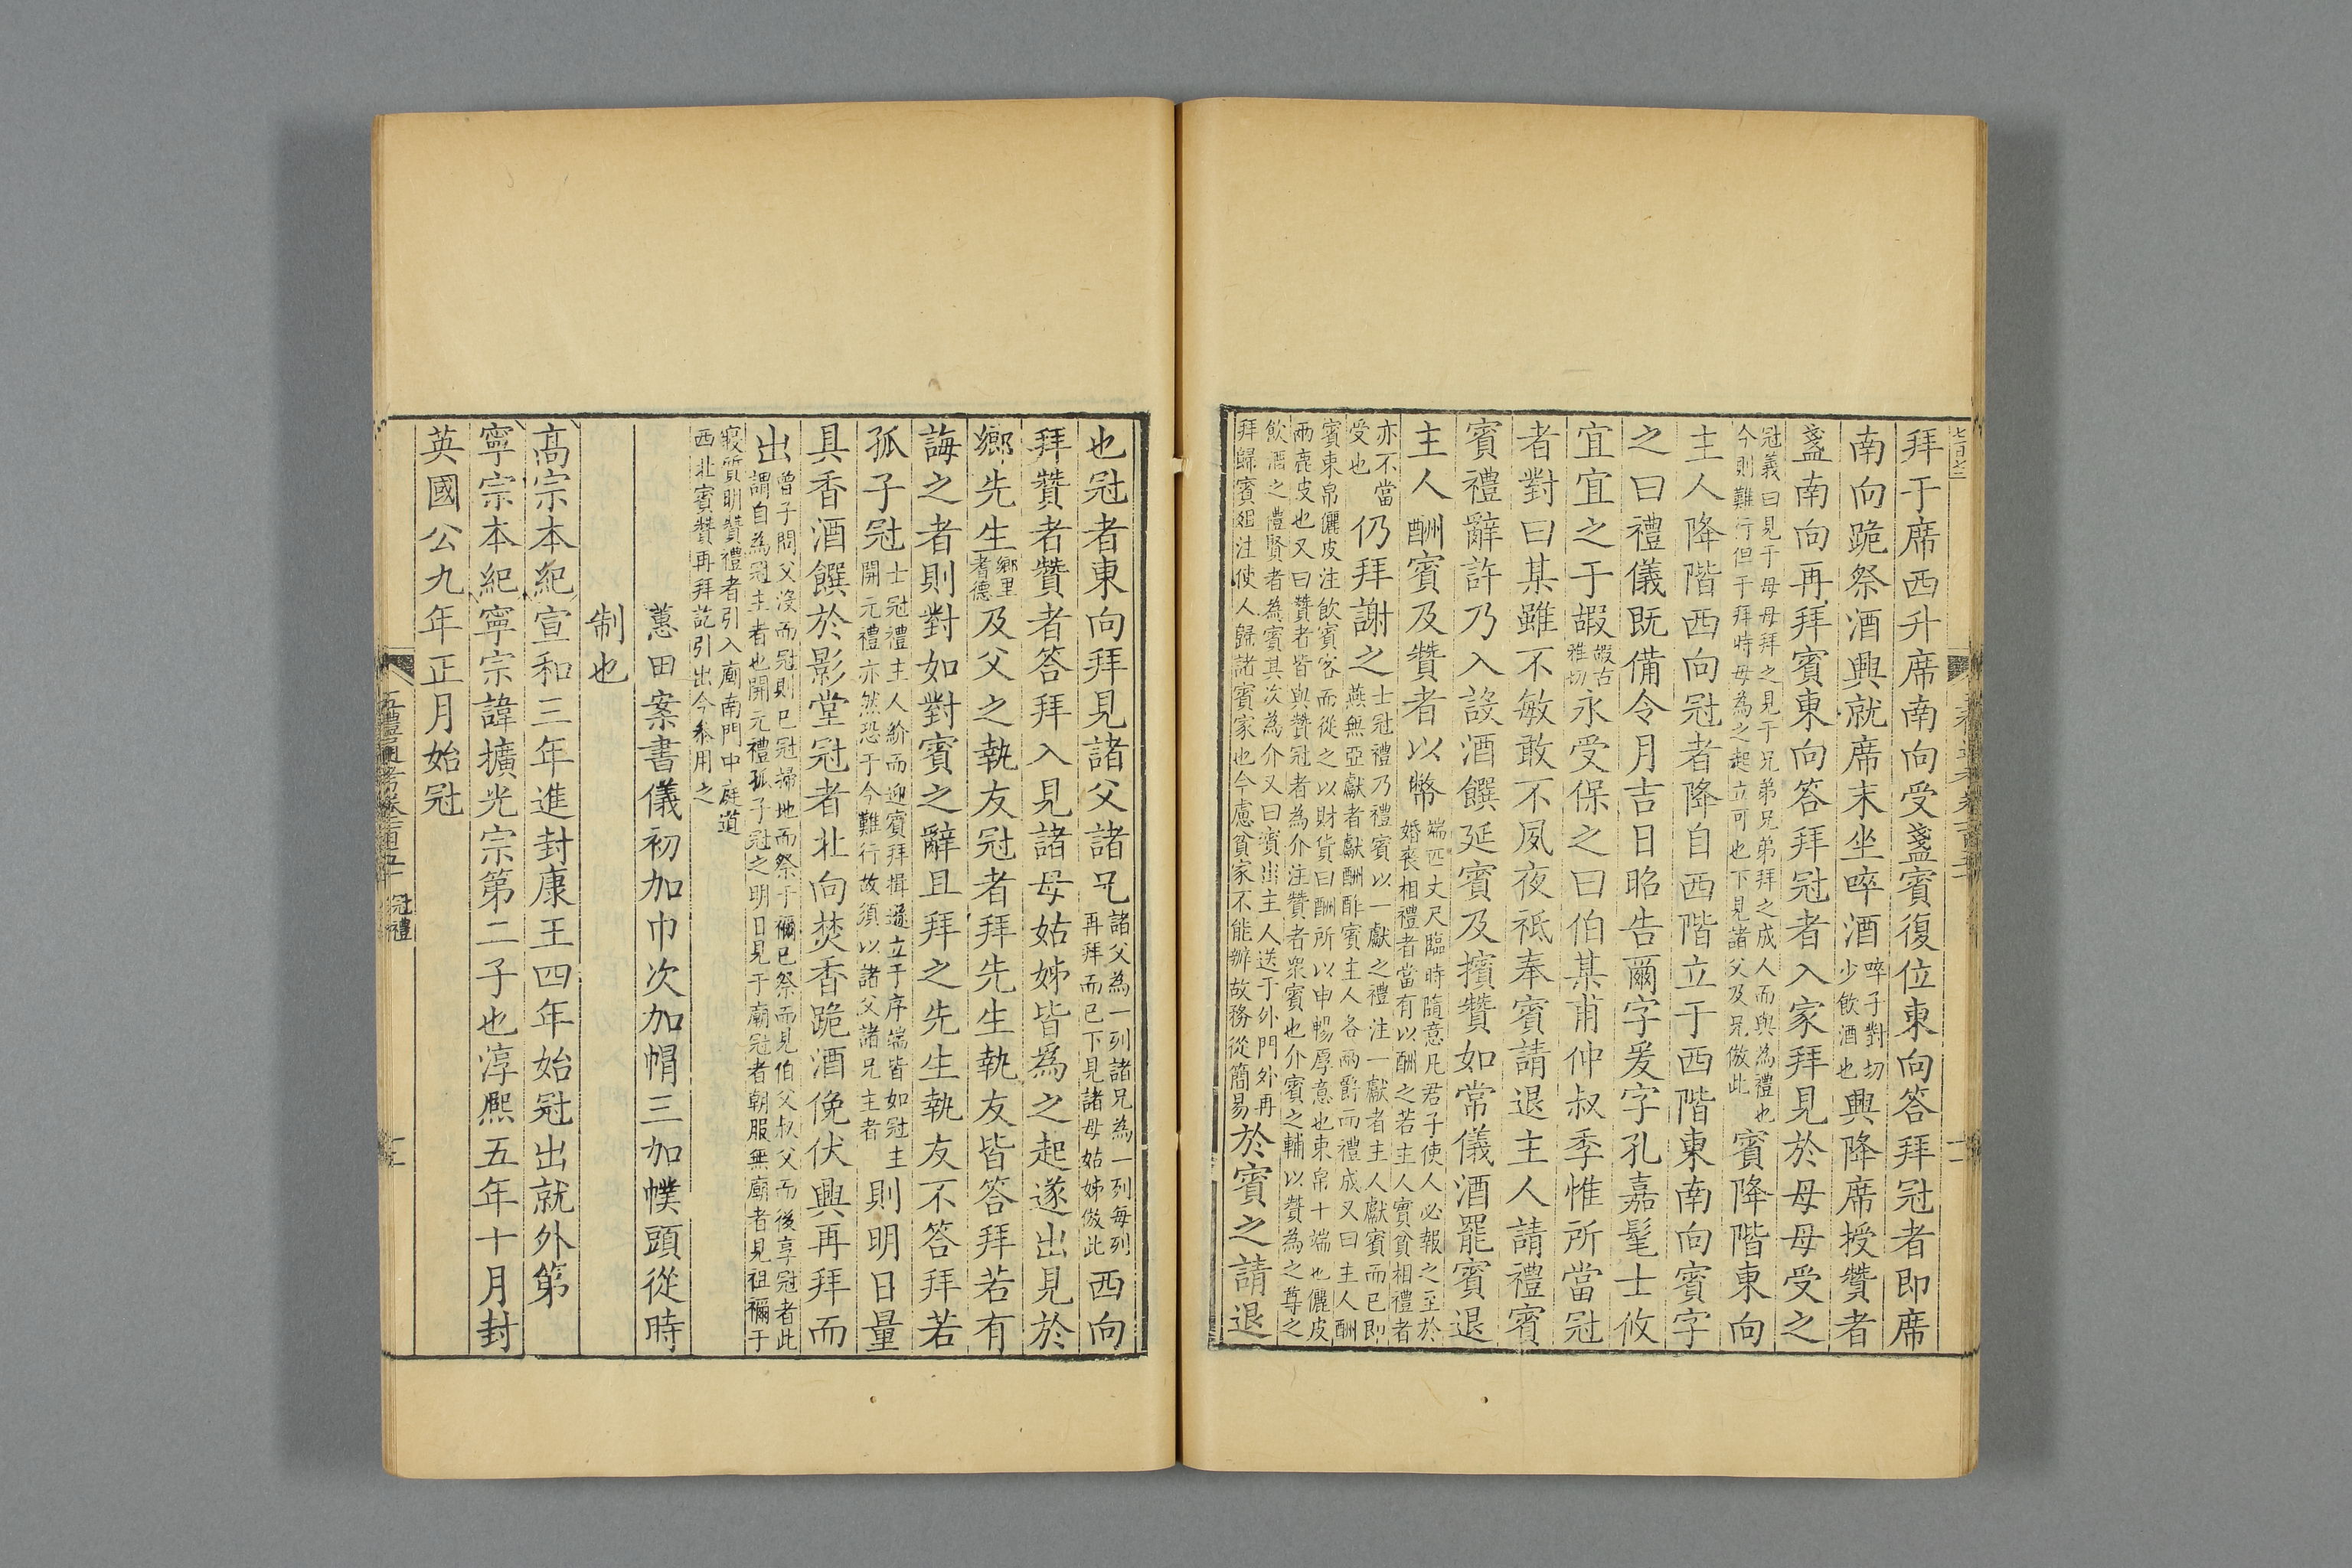 拜于席西升席南向受盞賓復位東向答拜冠者即席
南向跪祭酒興就席末坐啐酒啐子對切少飲酒也興降席授贊者
盞南向再拜賓東向答拜冠者入家拜見於母母受之
冠義曰見于母母拜之見于兄弟兄弟拜之成人而與為禮也今則難行但于拜時母為之起立可也下見諸父及兄倣此賓降階東向
主人降階西向冠者降自西階立于西階東南向賓字
之曰禮儀既備令月吉日昭告爾字爰字孔嘉髦士攸
宜宜之于嘏嘏古雅切永受保之曰伯某甫仲叔季惟所當冠
者對曰某雖不敏敢不夙夜祇奉賓請退主人請禮賓
賓禮辭許乃入設酒饌延賓及擯贊如常儀酒罷賓退
主人酬賓及贊者以幣端匹丈尺臨時隨意凡君子使人必報之至於婚喪相禮者當有以酬之若主人實貧相禮者
亦不當受也仍拜謝之士冠禮乃禮賓以一獻之禮注一獻者主人獻賓而已即燕無亞獻者獻酬酢賓主人各兩爵而禮成又曰主人酬
賓束帛儷皮注飲賓客而從之以財貨曰酬所以申暢厚意也束帛十端也儷皮兩鹿皮也又曰贊者皆與贊冠者為介注贊者衆賓也介賓之輔以贊為之尊之
飲酒之禮賢者為賓其次為介又曰賓出主人送于外門外再拜歸賓俎注使人歸諸賓家也今慮貧家不能辦故務從簡易於賓之請退
也冠者東向拜見諸父諸兄諸父為一列諸兄為一列每列再拜而已下見諸母姑姊倣此西向
拜贊者贊者答拜入見諸母姑姊皆為之起遂出見於
鄉先生鄉里耆德及父之執友冠者拜先生執友皆答拜若有
誨之者則對如對賓之辭且拜之先生執友不答拜若
孤子冠士冠禮主人紒而迎賓拜揖遜立于序端皆如冠主開元禮亦然恐于今難行故須以諸父諸兄主者則明日量
具香酒饌於影堂冠者北向焚香跪酒俛伏興再拜而
出曾子問父沒而冠則已冠掃地而祭于禰已祭而見伯父叔父而後享冠者此謂自為冠主者也開元禮孤子冠之明日見于廟冠者朝服無廟者見祖禰于
寢質明贊禮者引入廟南門中庭道西北賓贊再拜訖引出今參用之
蕙田案書儀初加巾次加帽三加幞頭從時
制也
高宗本紀宣和三年進封康王四年始冠出就外第
寧宗本紀寧宗諱擴光宗第二子也淳熙五年十月封
英國公九年正月始冠
五禮通考卷一百五十 冠禮